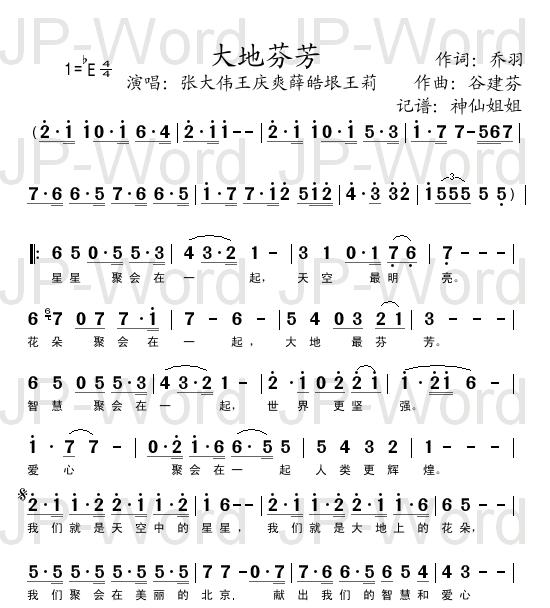 大地芬芳
1=♭E 4/4
作词：乔羽
演唱：张大伟王庆爽薛皓垠王莉
作曲：谷建芬
记谱：神仙姐姐
(2·1 10·1 6·4 | 2·1 1-- | 2·1 10·1 10·1 5·3 | 1·7 7-567 |
7·6 6·5 7·6 6·5 | 1·7 7·12 512 | 4·3 32 | 1555 5 5) |
‖: 6 5 0·5 5·3 | 4 3·2 1 - | 3 1 0·1 7 6 | 7 - - - |
星星 聚会在 一 起， 天空 最明 亮。
6 67 07 7·1 | 7 - 6 - | 5 4 03 21 | 3 - - - |
花朵 聚会在 一起， 大地 最芬 芳。
6 5 05 5·3 | 4 3·2 1 - | 2·1 02 21 | 1·21 6 - |
智慧 聚会在 一 起， 世界 更坚 强。
1·7 7 - | 0·2 1·6 6·5 5 | 5 4 3 2 | 1 - - - |
爱心 聚会在一 起 人类更辉 煌。
2·1 1·2 2·1 1·2 | 1 6 - - | 2·1 1·2 2·1 1·6 | 6 5 - - |
我们就是天空中的星星， 我们就是大地上的花朵，
5·5 5·5 5·5 5·5 | 7 7 -0·7 | 7·6 6·6 6·6 6·6 | 7 7 - - |
我们聚会在美丽的北京， 献出我们的智慧和爱心
JP-Word JP-Word
JP-Word JP-Word
JP-Word JP-Word
JP-Word JP-Word
JP-Word JP-Word